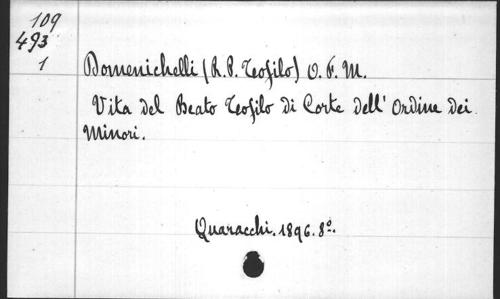 109
493
1
Domenichelli (R. P. Teofilo) O. F. M.
Vita del Beato Teofilo di Corte dell' Ordine dei
Minori.
Quaracchi. 1896. 8º.